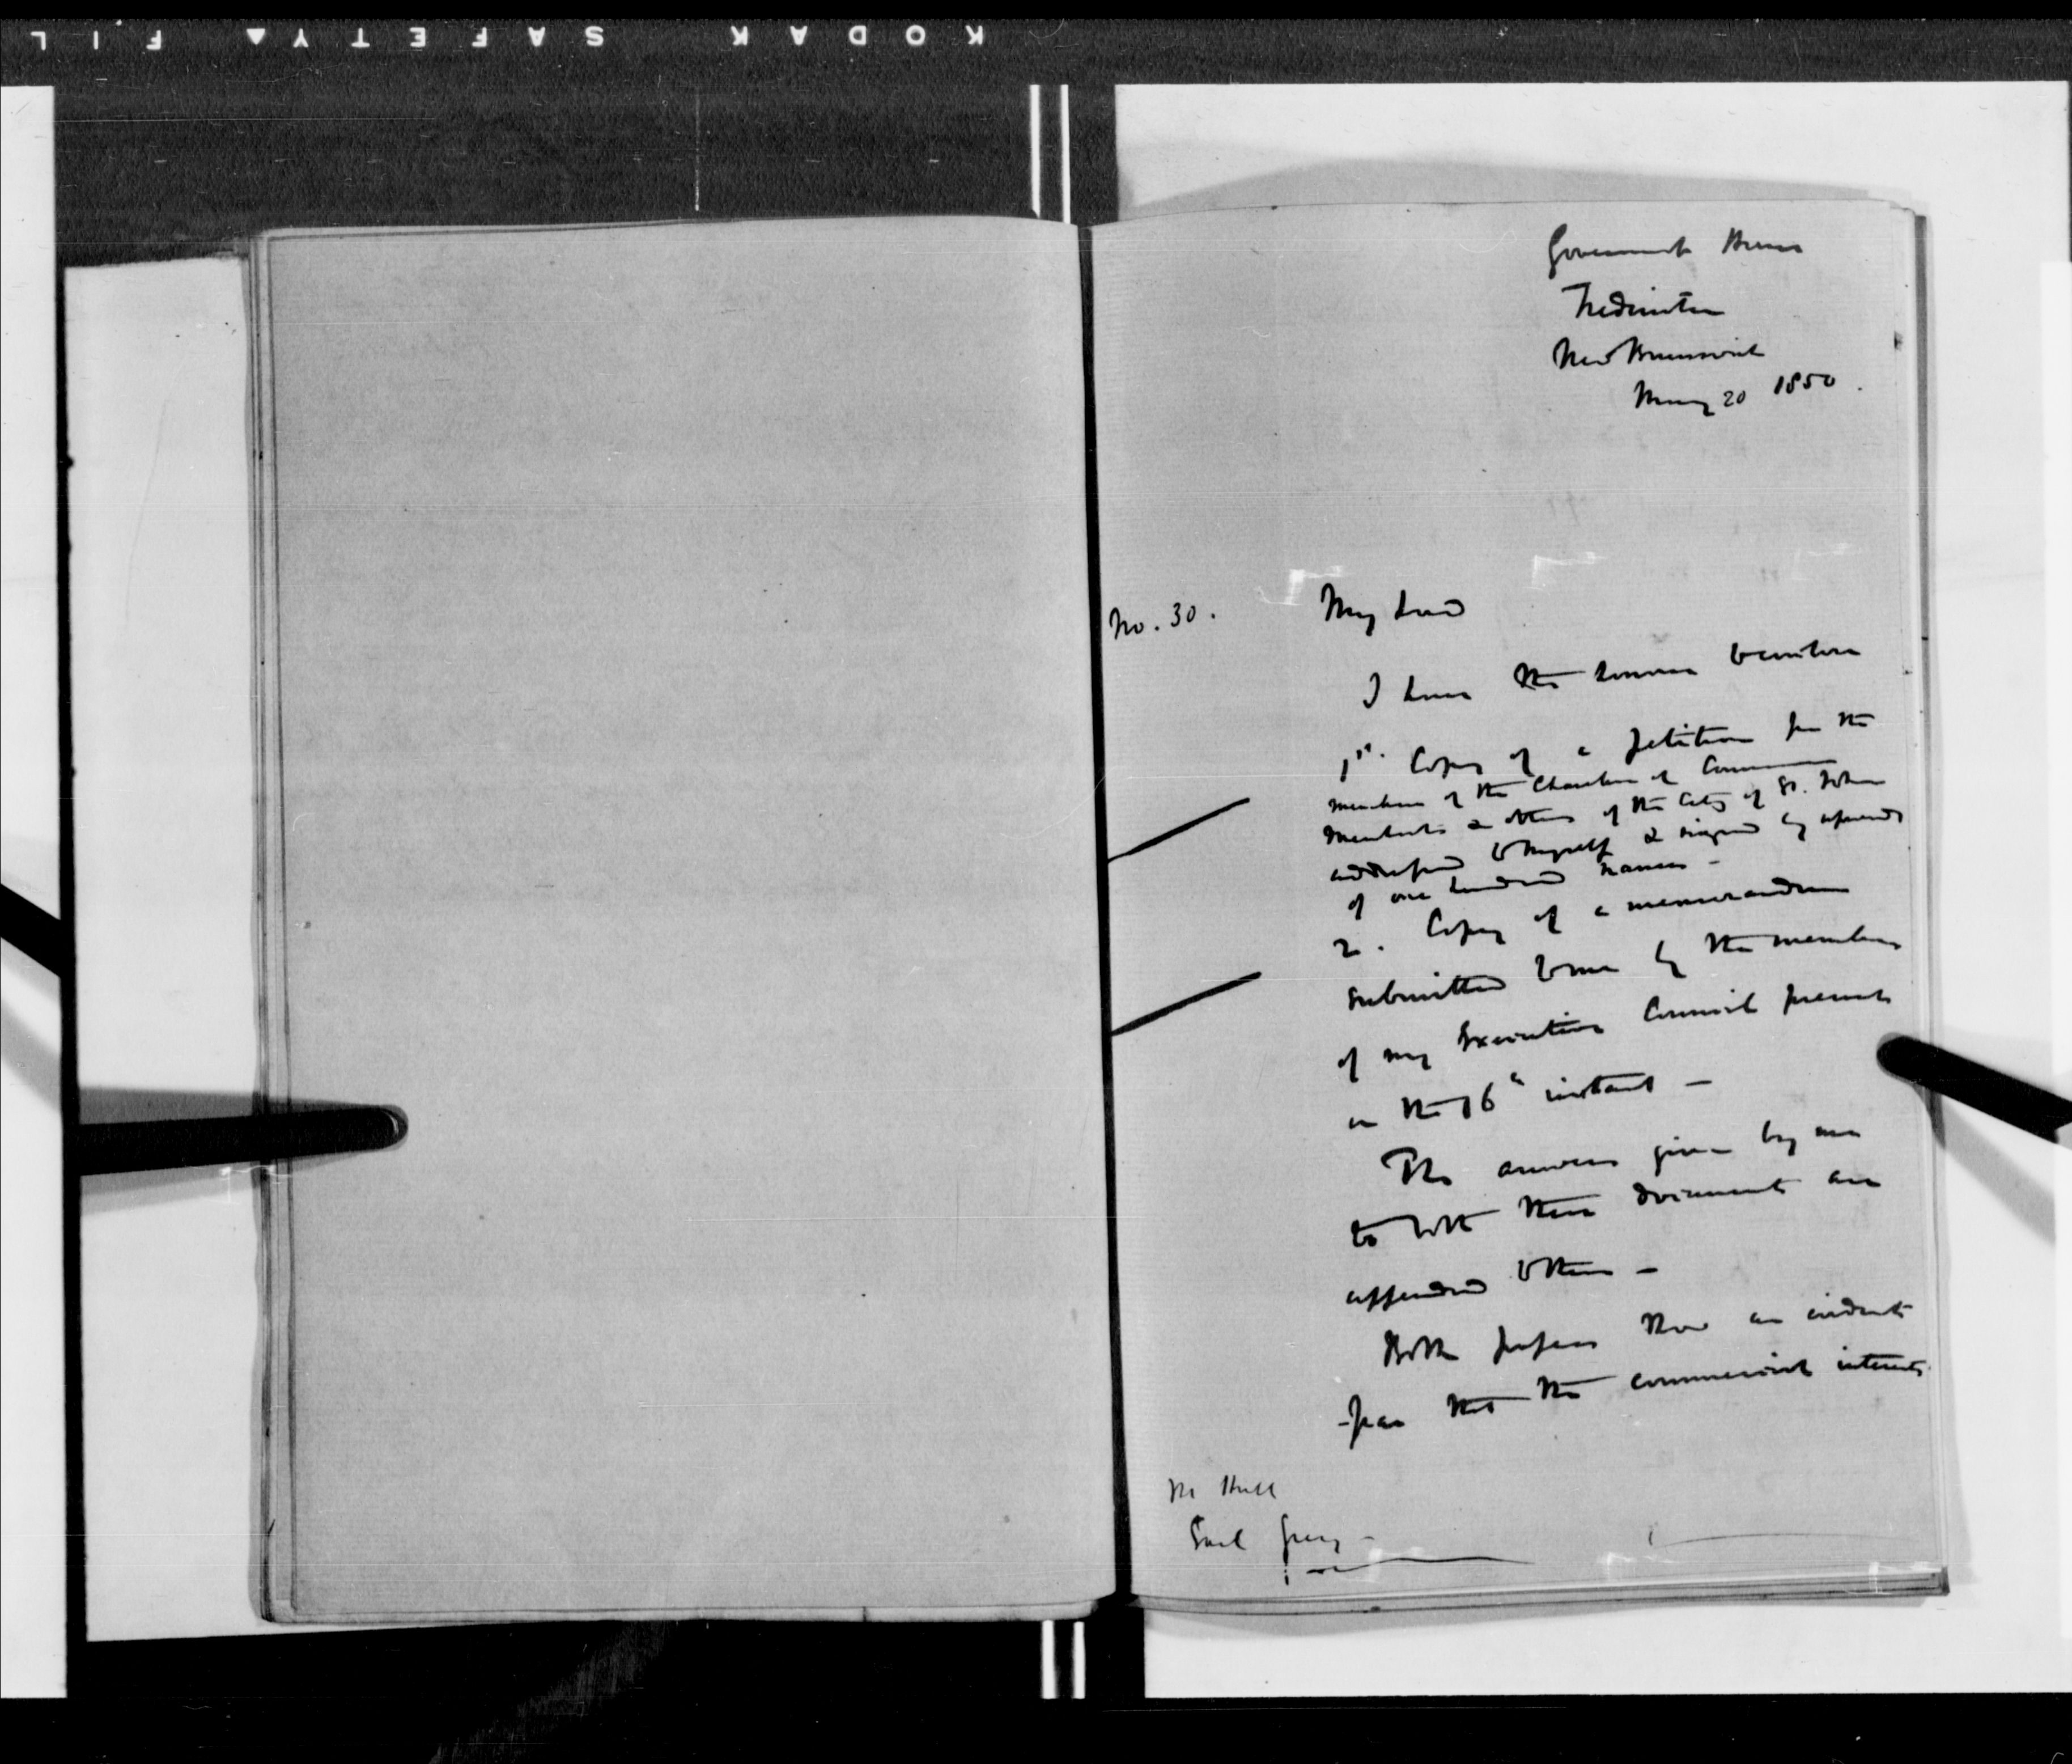 KODAK SAFETY FIL
Government House
Fredericton
New Brunswick
May 20 1850.
No. 30.
My Lord
I have the honour to enclose
1st. Copy of a petition from the
members of the Chamber of Commerce
Merchants & others of the City of St. John
addressed to myself & signed by upwards
of one hundred names -
2. Copy of a memorandum
submitted to me by the members
of my Executive Council present
on the 16th instant -
The answers given by me
to both these documents are
appended to them -
Both papers shew an evident
fear that the commercial interests
Earl Grey -